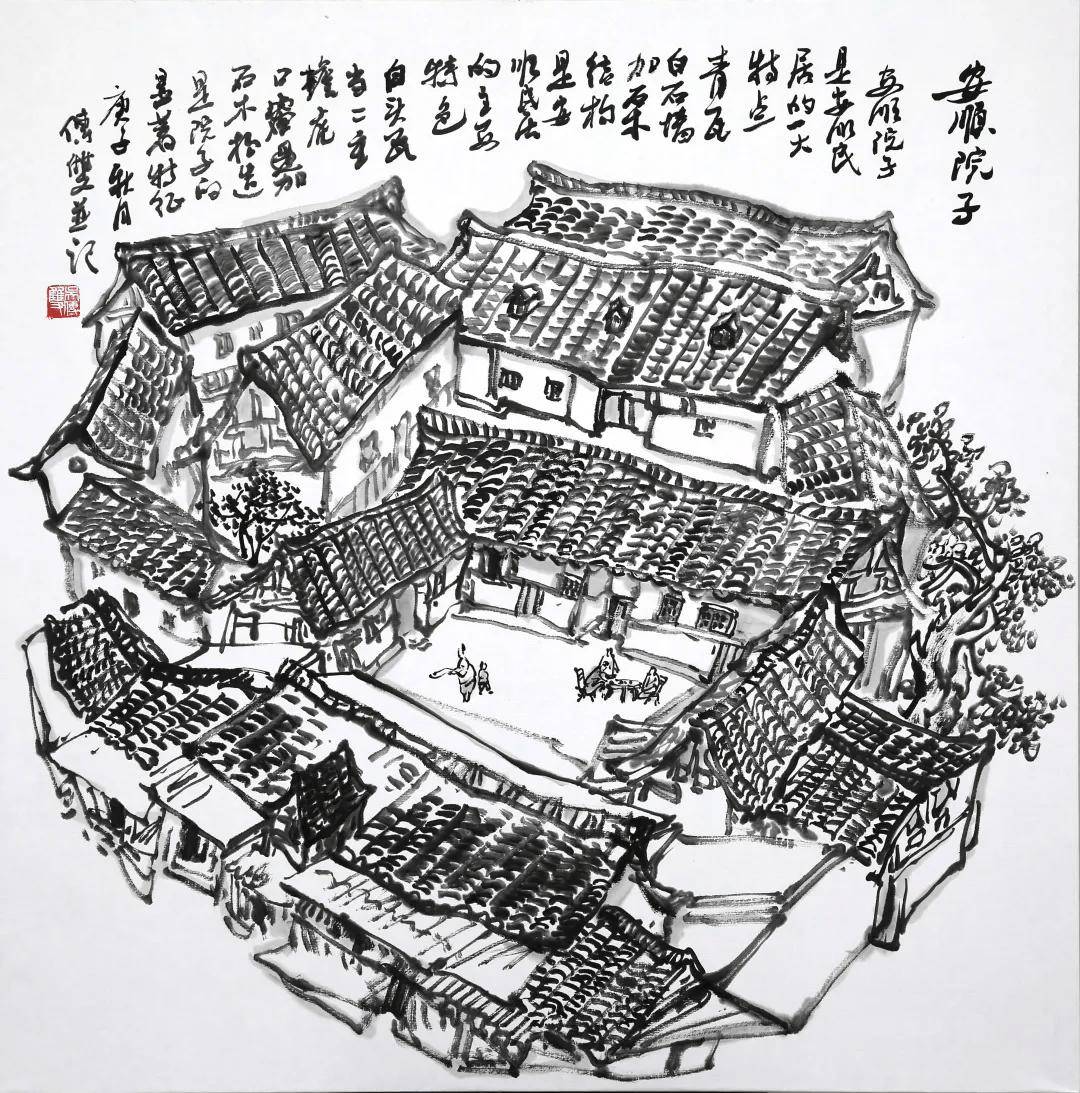 安順院子
安顺院子
是安顺民
居的一大
特点
青瓦
白石墙
加石木
结构
是安
顺民居
的主要
特色
白头瓦
当二主
檐
口
石木打造
是院子的
显著特征
庚子秋月
傳雙並记